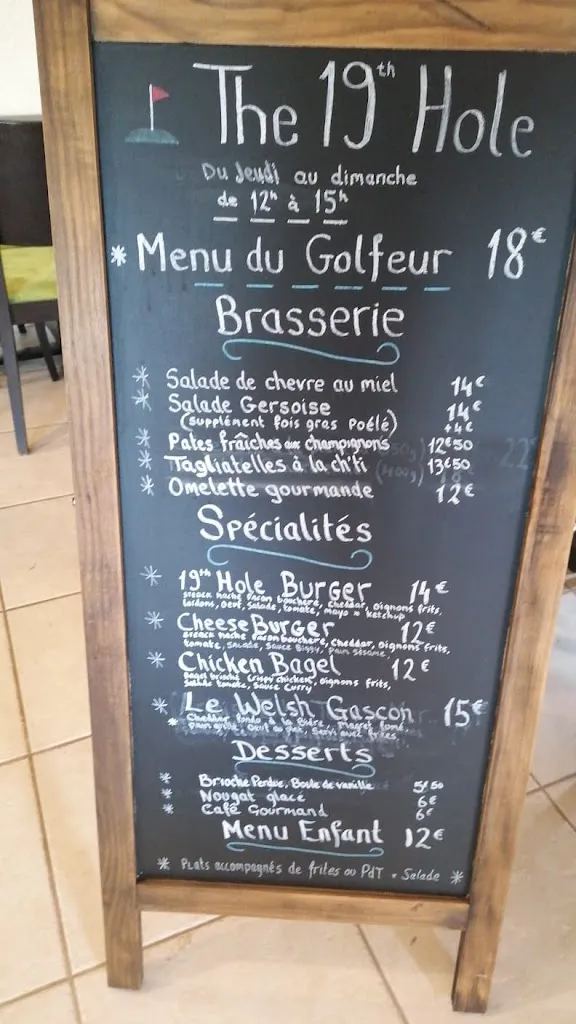 The 19th Hole
Du Jeudi au dimanche
de 12h à 15h
* Menu du Golfeur 18€
Brasserie
* Salade de chevre au miel 14€
* Salade Gersoise 14€
(supplément fois gras Poélé) +4€
* Pates fraîches aux champignons 12€50
* Tagliatelles à la ch'ti 13€50
* Omelette gourmande 12€
Spécialités
* 19th Hole Burger 14€
steack haché facon bouchère, cheddar, oignons frits,
lardons, oeuf, salade, tomate, mayo + ketchup
* Cheese Burger 12€
steack haché facon bouchère, cheddar, oignons frits,
tomate, salade, sauce Biggy, pain sésame
* Chicken Bagel 12€
Bagel brioché crispy chicken, oignons frits,
salade tomate, sauce curry
* Le Welsh Gascon 15€
* Cheddar fondu à la bière, magret fumé,
pain grillé, servi avec frites
Desserts
* Brioche Perdue, Boule de vanille 5€50
* Nougat glacé 6€
* Café Gourmand 6€
Menu Enfant 12€
* Plats accompagnés de frites ou PdT + Salade *